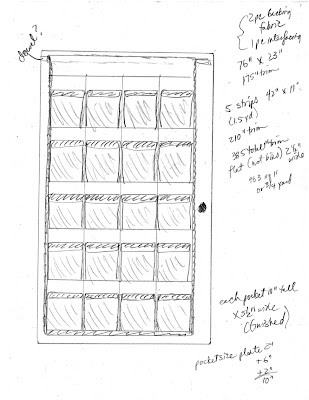 dowel?
2 pc backing
fabric
1 pc interfacing
76" x 23"
175" trim
5 strips 42" x 11"
(1.5 yd)
210" trim
385 total" trim
flat (not bias) 2½"
wide
963 sq in
or 3/4 yard
each pocket 10" tall
x 5½" wide
(finished)
pocket size plate
+ 6"
+ 2"
10"